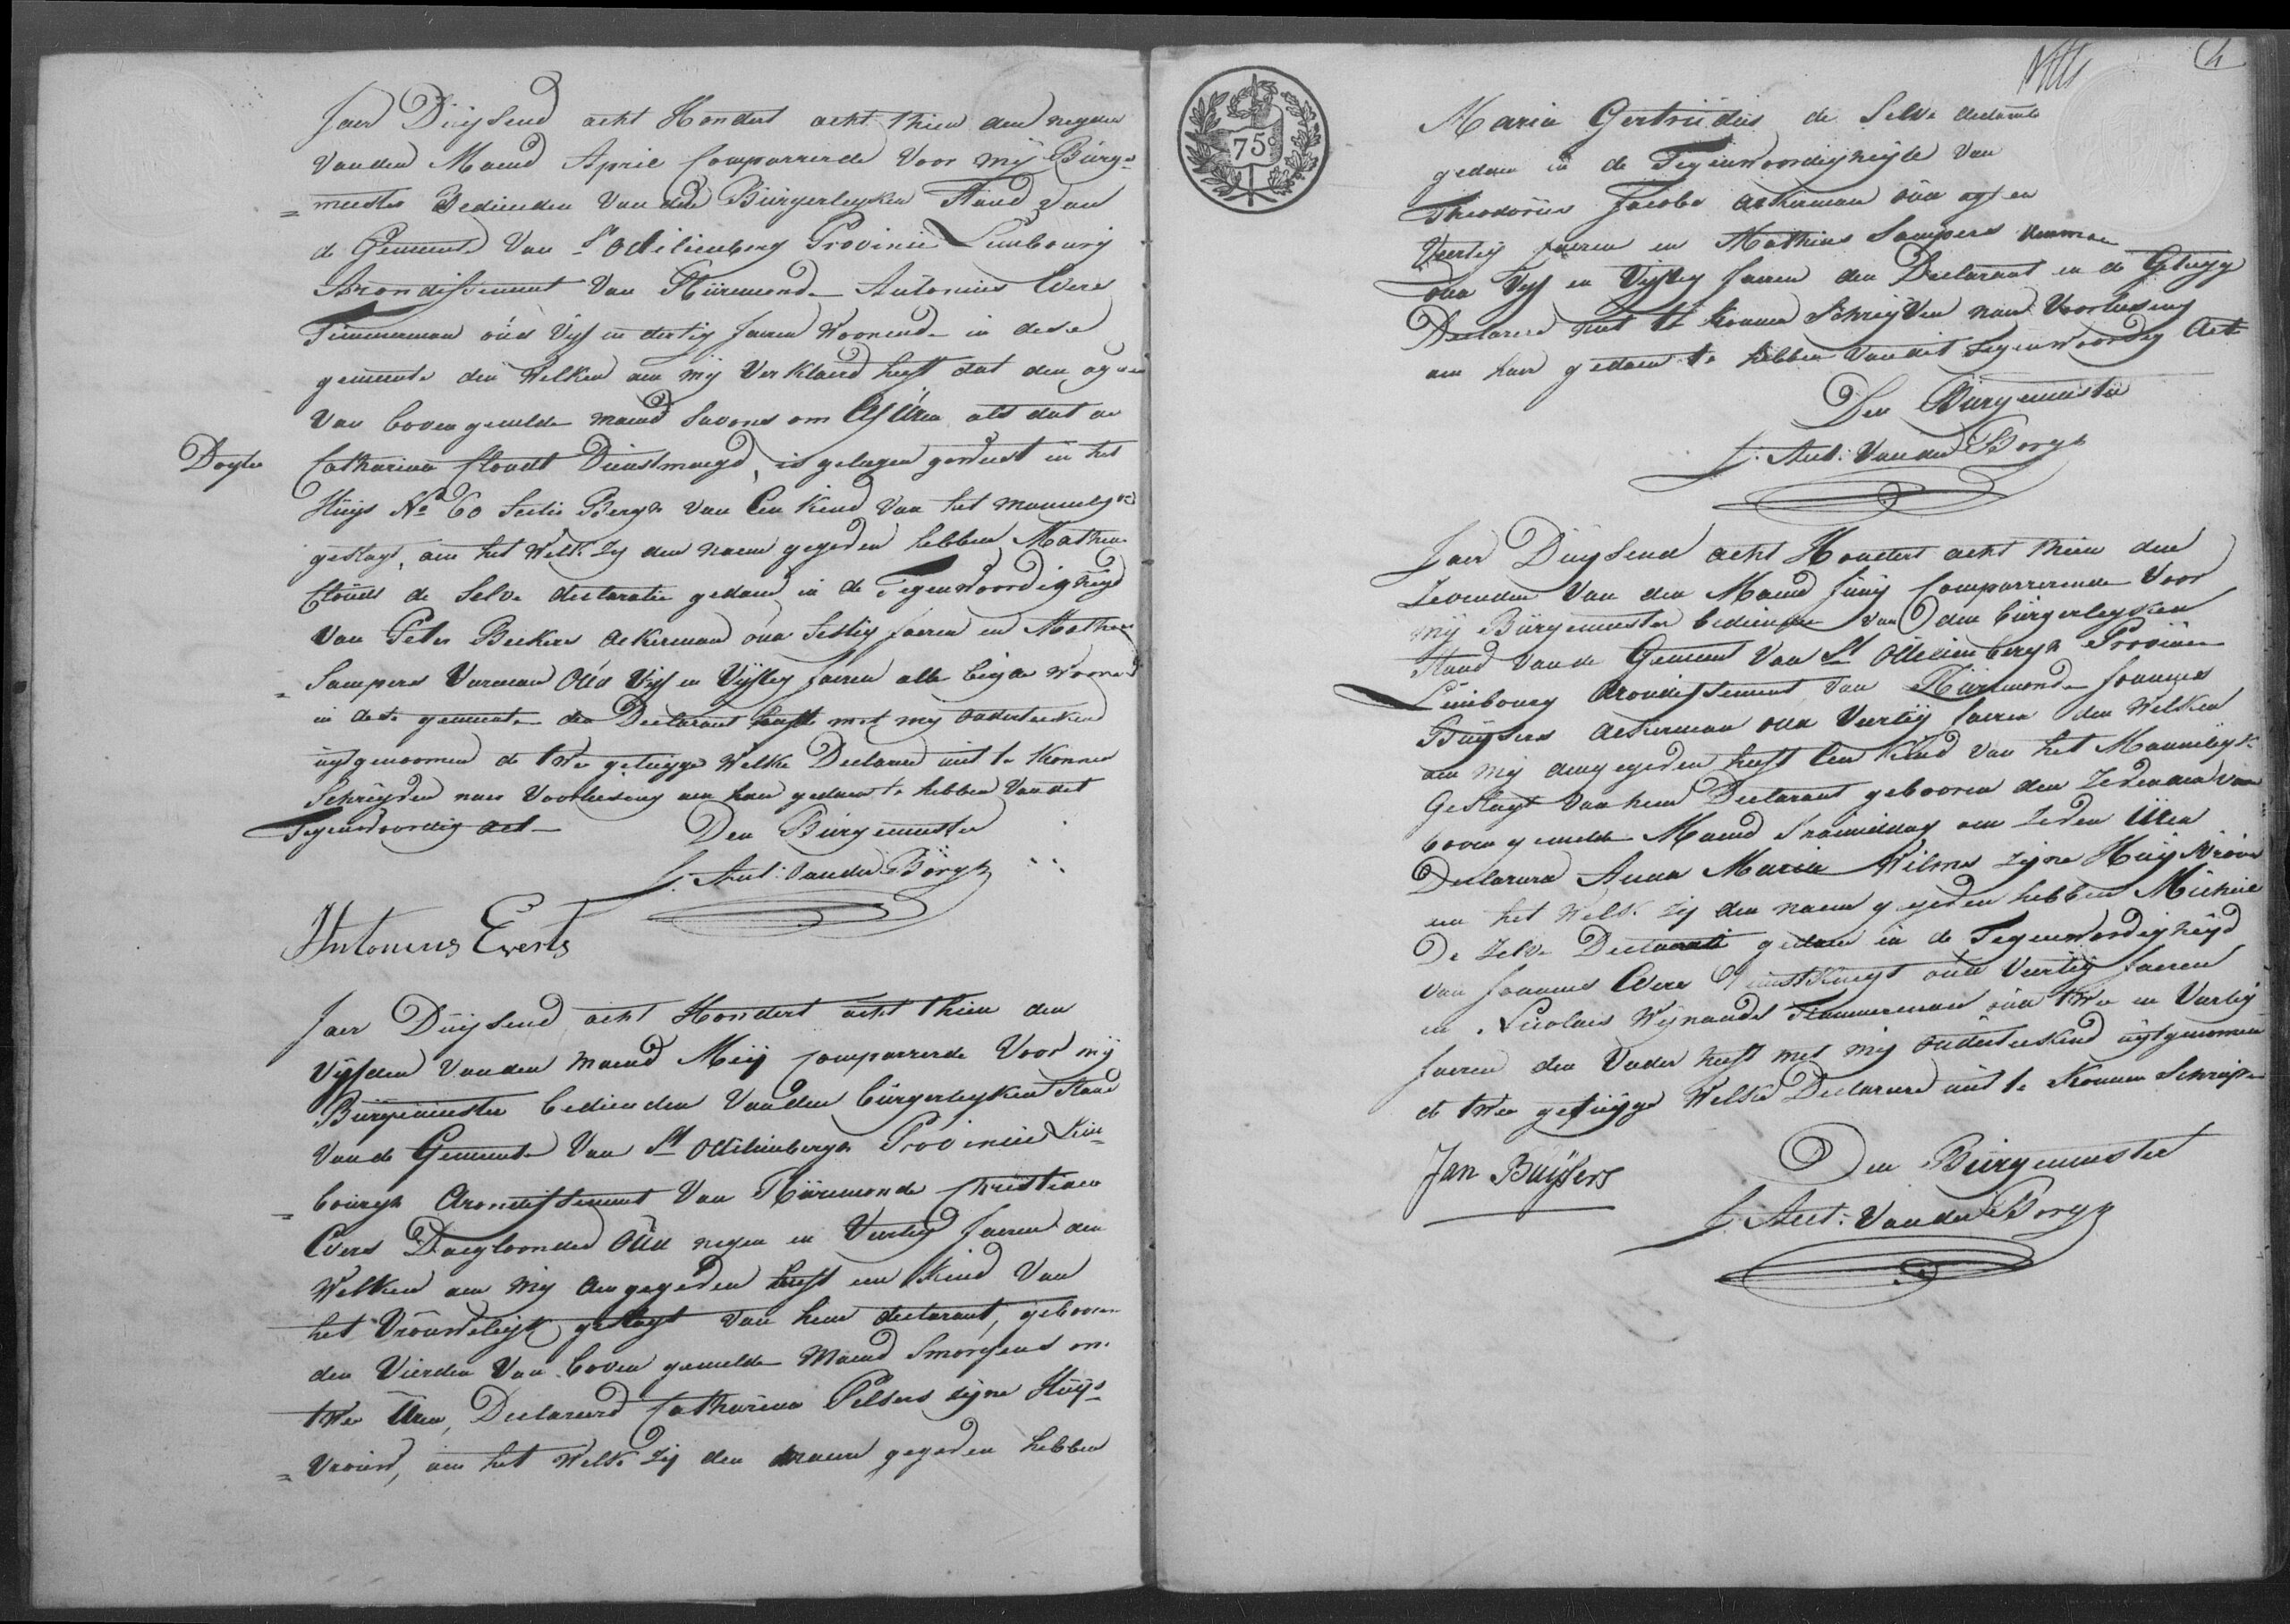 Jaer Duysend acht Hondert acht thien den negen
van den Maend April Comparreerde voor mij Burge-
= meester Bedienden van den Burgerleyken Stand van
de Gemeente van St Odilienberg Provincie Limbourg
Arrondissement van Rüremonde Antonius Evers
Timmerman oud Vijf en dertig Jaeren woonende in dese
gemeente den Welken aen mij verklaerd heeft dat den
van bovengemelde maend Savons om Elf Uren als dat
Dogter
Catharina Clouts Dienstmaegd, is gelegen in het
Huys No 60 Sectie Bergh van Een kind van het mannelyk
geslagt, aen het Welk Zy den naem gegeven hebben Mathias
Clouts de Selve declaratie gedaen in de Tegenwoordigheyd
van Peter Beckers ackerman oud Sestig Jaeren en Mathias
= Sampers oud Vijf en Vijftig Jaeren alle beyde woonend
in dese gemeente den Declarant heeft met my onderteekend
uytgenoomen de twe getuygen Welke Declareerd niet te konnen
Schryven naer Voorleesing aen haer gedaen te hebben van dit
Tegenwoordig act
Den Burgemeester
J. Ant: van der Borgh
Antonius Everts
Jaer Duysend acht Hondert acht thien den
Vijfden van den maend Meij comparreerde Voor mij
Burgemeester bedienden van den burgerleyken Stand
van de Gemeente van St Odilienbergh Provincie Lim-
= bourgh Arondissement van Rüremonde Christiaen
Evers Dagloonder Oud negen en Veertig Jaeren den
Welken aen mij aengegeven heeft een kind van
het Vrouwelijk geslagt van hem declarant, gebooren
den Vierden van boven gemelde Maend Smorgens om
twe Uren, Declareerd Catharina Pelsers zijne Huys-
= vrouw, aen het Welk Zij den naem gegeven hebben
4
75c
Maria Gertrüdis de Selve declaratie
gedaen in de Tegenwoordigheyd van
Theodorus Jacobs ackerman oud agt en
Veertig Jaeren en Mathias Sampers
oud Vijf en Vijftig Jaeren den Declarant en de Getuyg
Declareerd niet te konnen Schreyven naer Voorleesing
aen haer gedaen te hebben van dit tegenwoordig Act
Den Burgemeester
J. Ant: van der Borgh
Jaer Duysend acht Hondert acht thien den
Zevenden van den Maend Junij Comparreerende Voor
mij Burgemeester bedienden van den burgerleyken
Stand van de Gemeent van St Odilienbergh Provincie
Limbourg Arondissement van Rüremonde Joannes
Buysers ackerman oud Veertig Jaeren den Welken
aen mij aengegeven heeft een kind van het Mannelijk
Geslagt van hem Declarant gebooren den Zevenden van
boven gemelde Maend om Zeven Uren
Declareerd Anna Maria Wilms zijne Huysvrouw
aen het Welk zij den naem gegeven hebben Michiel
De Zelve Declaratie gedaen in de Tegenwordigheijd
van Joannes Evers Dienstknegt oud Veertig Jaeren
en Nicolaus Wijnands Timmerman oud twe en Vertig
Jaeren den Vader heeft met mij onderteekend uytgenomen
de twee getuijge Welke Declareerd niet te Konnen Schrijven
Jan Buÿsers
Den Burgemeester
J. Ant: van der Borgh